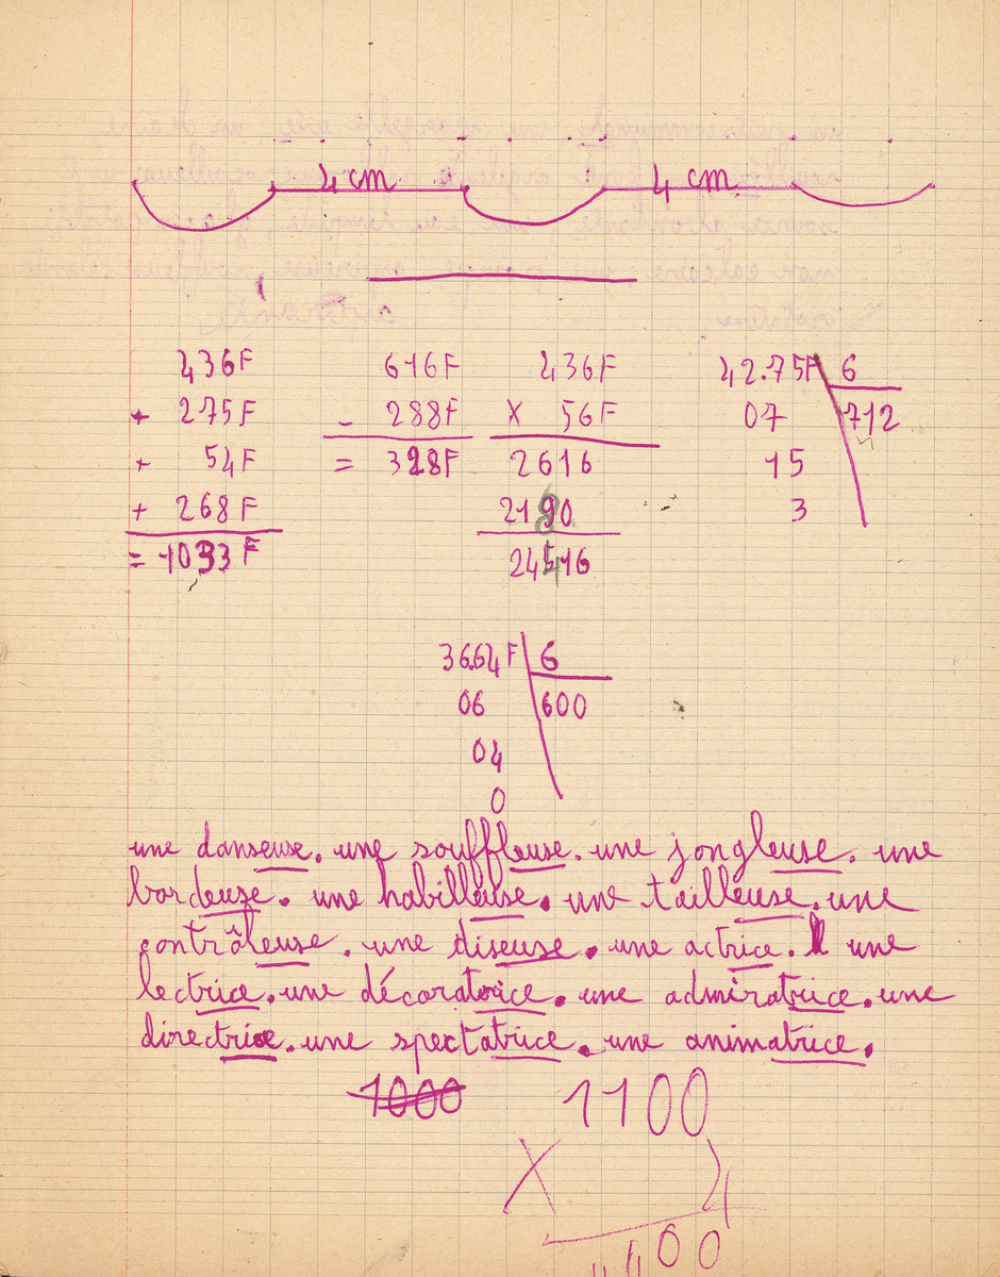 4 cm 4 cm
436F 616F 436F 42.75F 6
+ 275F - 288F X 56F 07 712
+ 54F = 328F 2616 15
+ 268F 2180 3
= 1033F 24416
36.64F 6
06 600
04
0
une danseuse. une souffleuse. une jongleuse. une
bordeuse. une habilleuse. une tailleuse. une
contrôleuse. une diseuse. une actrice. une
lectrice. une décoratrice. une admiratrice. une
directrice. une spectatrice. une animatrice.
1000 1100
X 4
4400